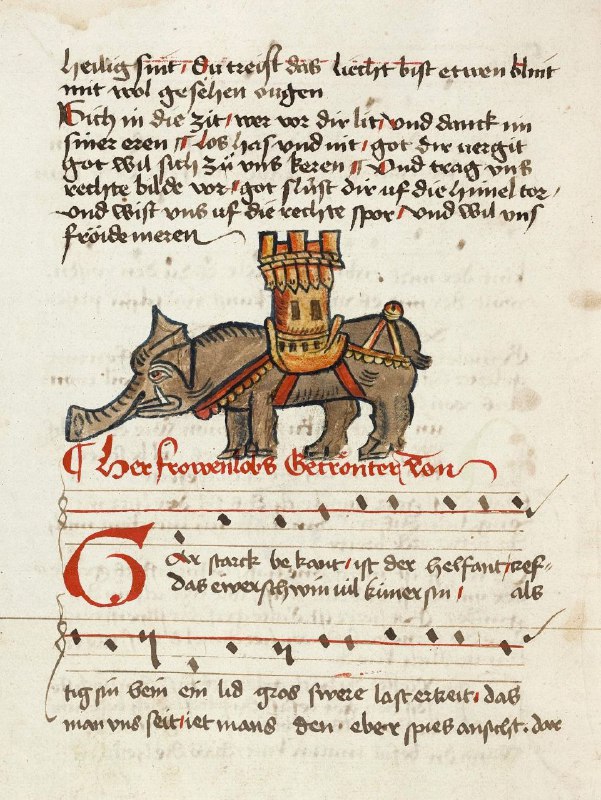 heilig sint / du treist das liecht bist etwen blint
mit wol gesehen ougen
Sich in die zit / wer vor dir lit / und danck im
siner eren ¶ los has und nit / got dir vergit
got wil sich zü uns keren ¶ Und trag uns
rechte bilde vor / got slüst dir uf die himel tor /
und wist uns uf die rechte spor / und wil uns
fröide meren
¶ Her frowenlobs Getrönter don
Gar starck be kant / ist der helfant / kef-
das ewerschwin wil küner sin / als
tig sin bein ein lid gros swere last er treit / das
man uns seit / iet mans den eber spies ansicht . dar